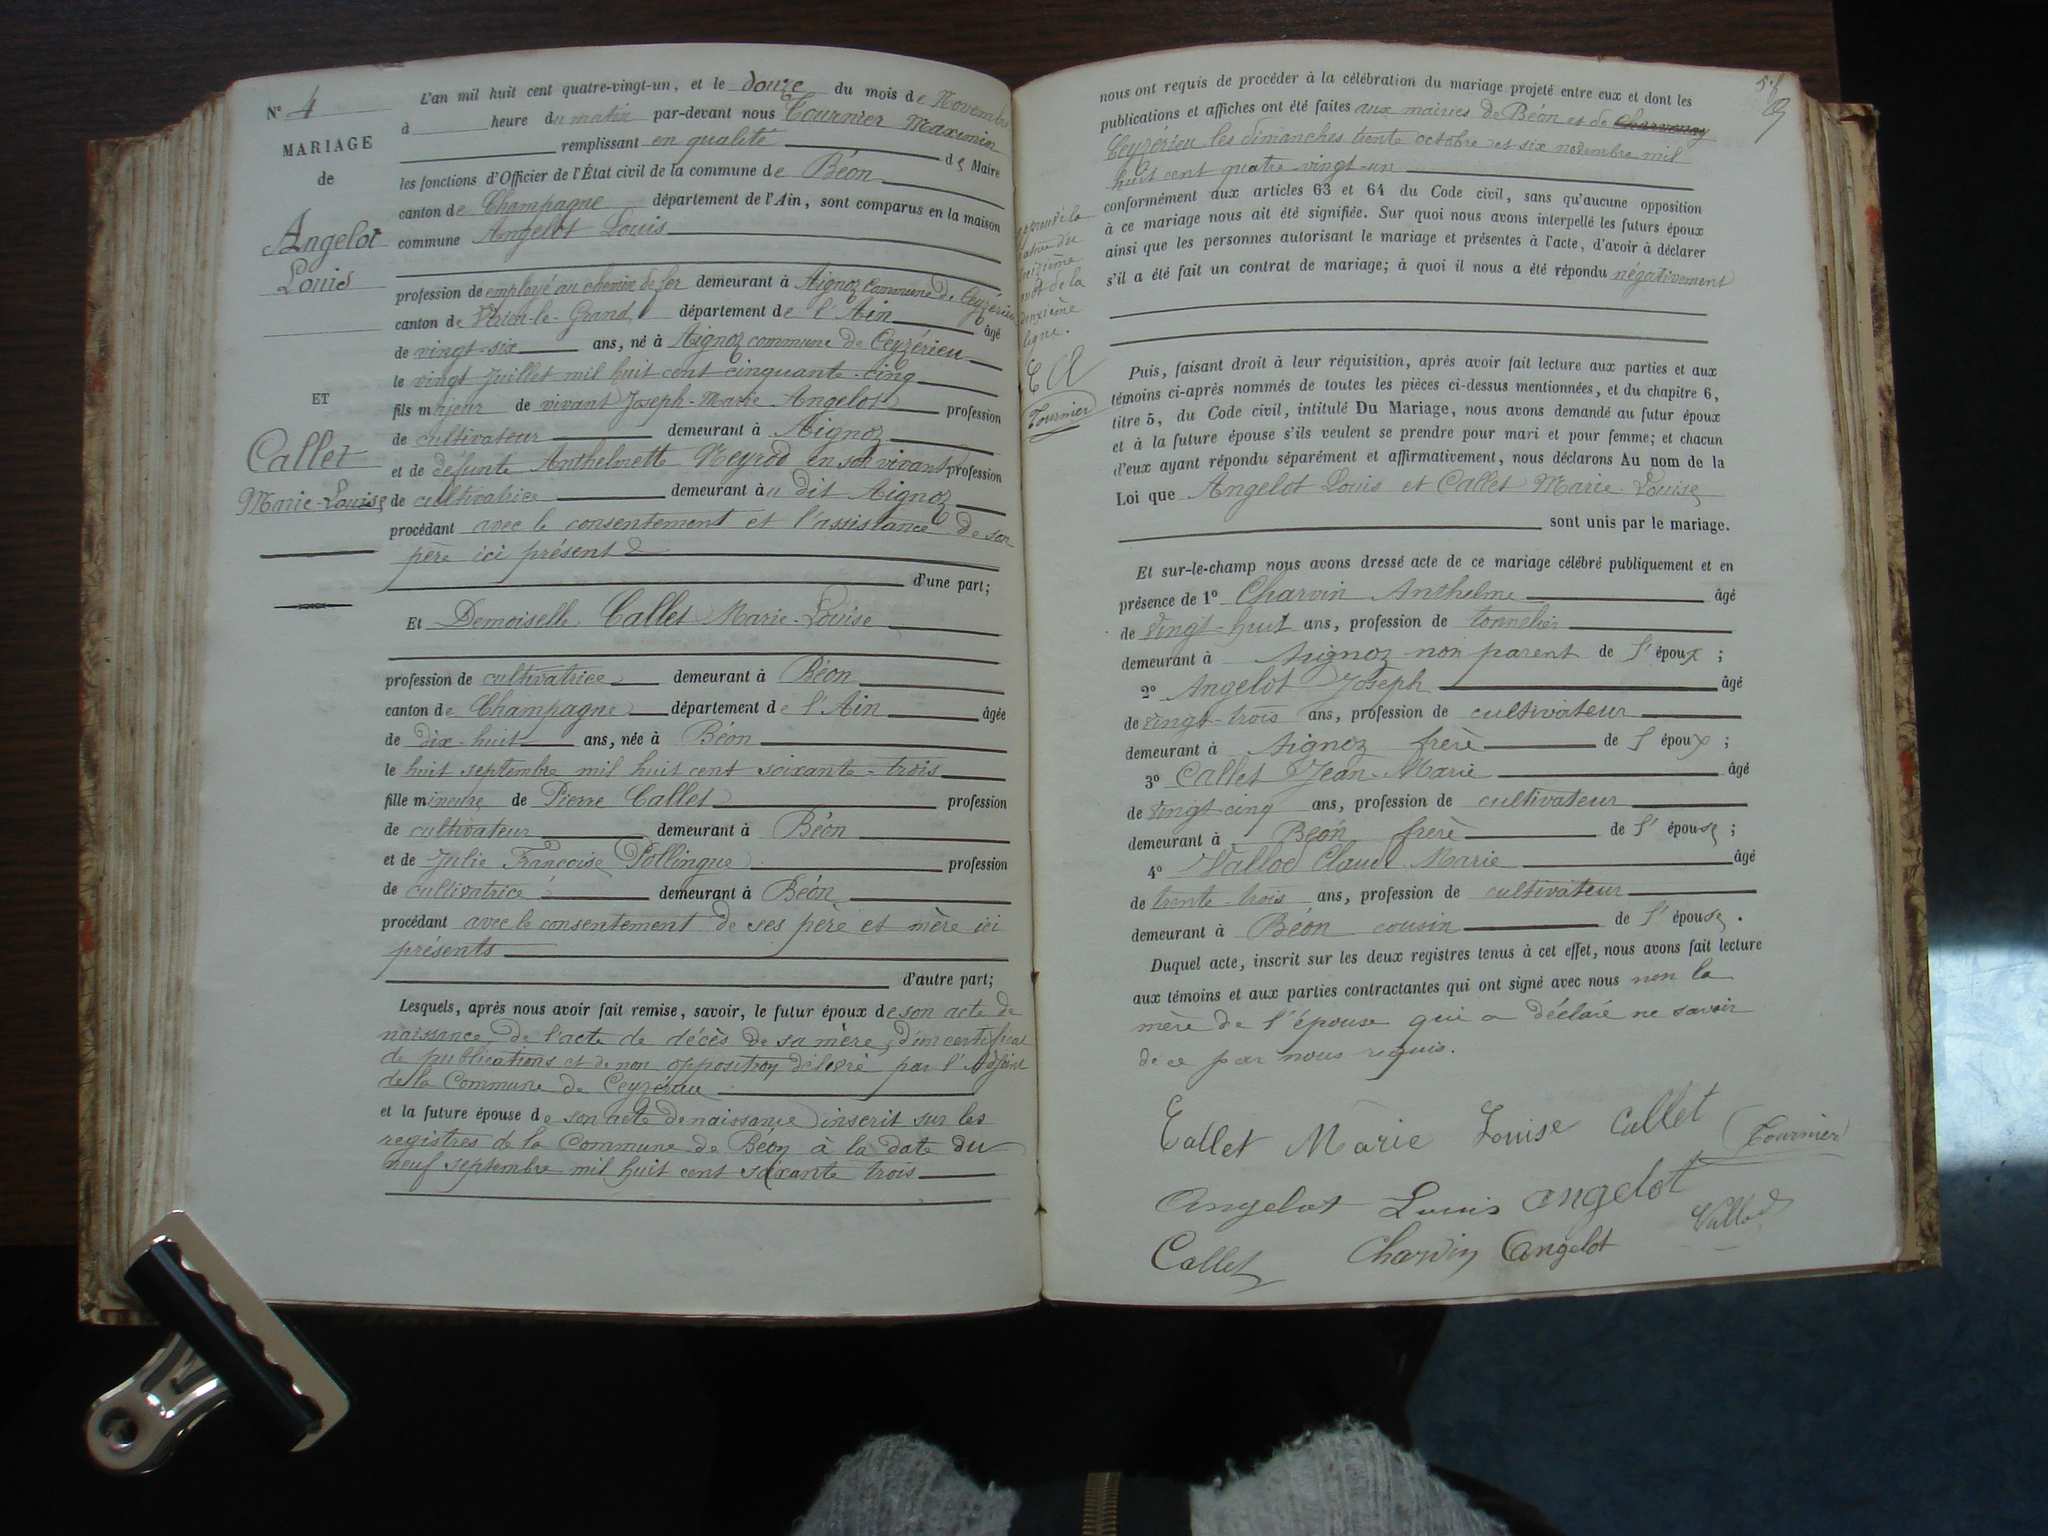 N° 4
MARIAGE
de
Angelot
Louis
ET
Callet
Marie-Louise
L'an mil huit cent quatre-vingt-un, et le douze du mois de Novembre
à heure du matin par-devant nous Tournier Maximin
remplissant en qualité de Maire
les fonctions d'Officier de l'État civil de la commune de Béon
canton de Champagne département de l'Ain, sont comparus en la maison
commune Angelot Louis
profession de employé au chemin de fer demeurant à Aignoz commune de Ceyzérieu
canton de Virieu-le-Grand département de l'Ain âgé
de vingt-six ans, né à Aignoz commune de Ceyzérieu
le vingt Juillet mil huit cent cinquante-cinq
fils majeur de vivant Joseph-Marie Angelot profession
de cultivateur demeurant à Aignoz
et de défunte Anthelmette Neyrod en son vivant profession
de cultivatrice demeurant au dit Aignoz
procédant avec le consentement et l'assistance de son
père ici présent
d'une part;
Et Demoiselle Callet Marie-Louise
profession de cultivatrice demeurant à Béon
canton de Champagne département de l'Ain âgée
de dix-huit ans, née à Béon
le huit septembre mil huit cent soixante-trois
fille mineure de Pierre Callet profession
de cultivateur demeurant à Béon
et de Julie Françoise Pollingue profession
de cultivatrice demeurant à Béon
procédant avec le consentement de ses père et mère ici
présents
d'autre part;
Lesquels, après nous avoir fait remise, savoir, le futur époux de son acte de
naissance, de l'acte de décès de sa mère, d'un certificat
de publications et de non opposition délivré par l'Adjoint
de la Commune de Ceyzérieu
et la future épouse de son acte de naissance inscrit sur les
registres de la Commune de Béon à la date du
neuf septembre mil huit cent soixante trois
nous ont requis de procéder à la célébration du mariage projeté entre eux et dont les
publications et affiches ont été faites aux mairies de Béon et de Charvonay
Ceyzérieu les dimanches trente octobre et six novembre mil
huit cent quatre-vingt-un
conformément aux articles 63 et 64 du Code civil, sans qu'aucune opposition
à ce mariage nous ait été signifiée. Sur quoi nous avons interpellé les futurs époux
ainsi que les personnes autorisant le mariage et présentes à l'acte, d'avoir à déclarer
s'il a été fait un contrat de mariage; à quoi il nous a été répondu négativement
mot de la
deuxième
ligne.
Tournier
Puis, faisant droit à leur réquisition, après avoir fait lecture aux parties et aux
témoins ci-après nommés de toutes les pièces ci-dessus mentionnées, et du chapitre 6,
titre 5, du Code civil, intitulé Du Mariage, nous avons demandé au futur époux
et à la future épouse s'ils veulent se prendre pour mari et pour femme; et chacun
d'eux ayant répondu séparément et affirmativement, nous déclarons Au nom de la
Loi que Angelot Louis et Callet Marie Louise
sont unis par le mariage.
Et sur-le-champ nous avons dressé acte de ce mariage célébré publiquement et en
présence de 1° Charvin Anthelme âgé
de vingt-huit ans, profession de tonnelier
demeurant à Aignoz non parent de l'époux ;
2° Angelot Joseph âgé
de vingt-trois ans, profession de cultivateur
demeurant à Aignoz frère de l'époux ;
3° Callet Jean-Marie âgé
de vingt cinq ans, profession de cultivateur
demeurant à Béon frère de l'épouse ;
4° Vallod Claude Marie âgé
de trente-trois ans, profession de cultivateur
demeurant à Béon cousin de l'épouse .
Duquel acte, inscrit sur les deux registres tenus à cet effet, nous avons fait lecture
aux témoins et aux parties contractantes qui ont signé avec nous non la
mère de l'épouse qui a déclaré ne savoir
de ce par nous requis.
Callet Marie Louise Callet Tournier
Angelot Louis Angelot Vallod
Callet Charvin Angelot